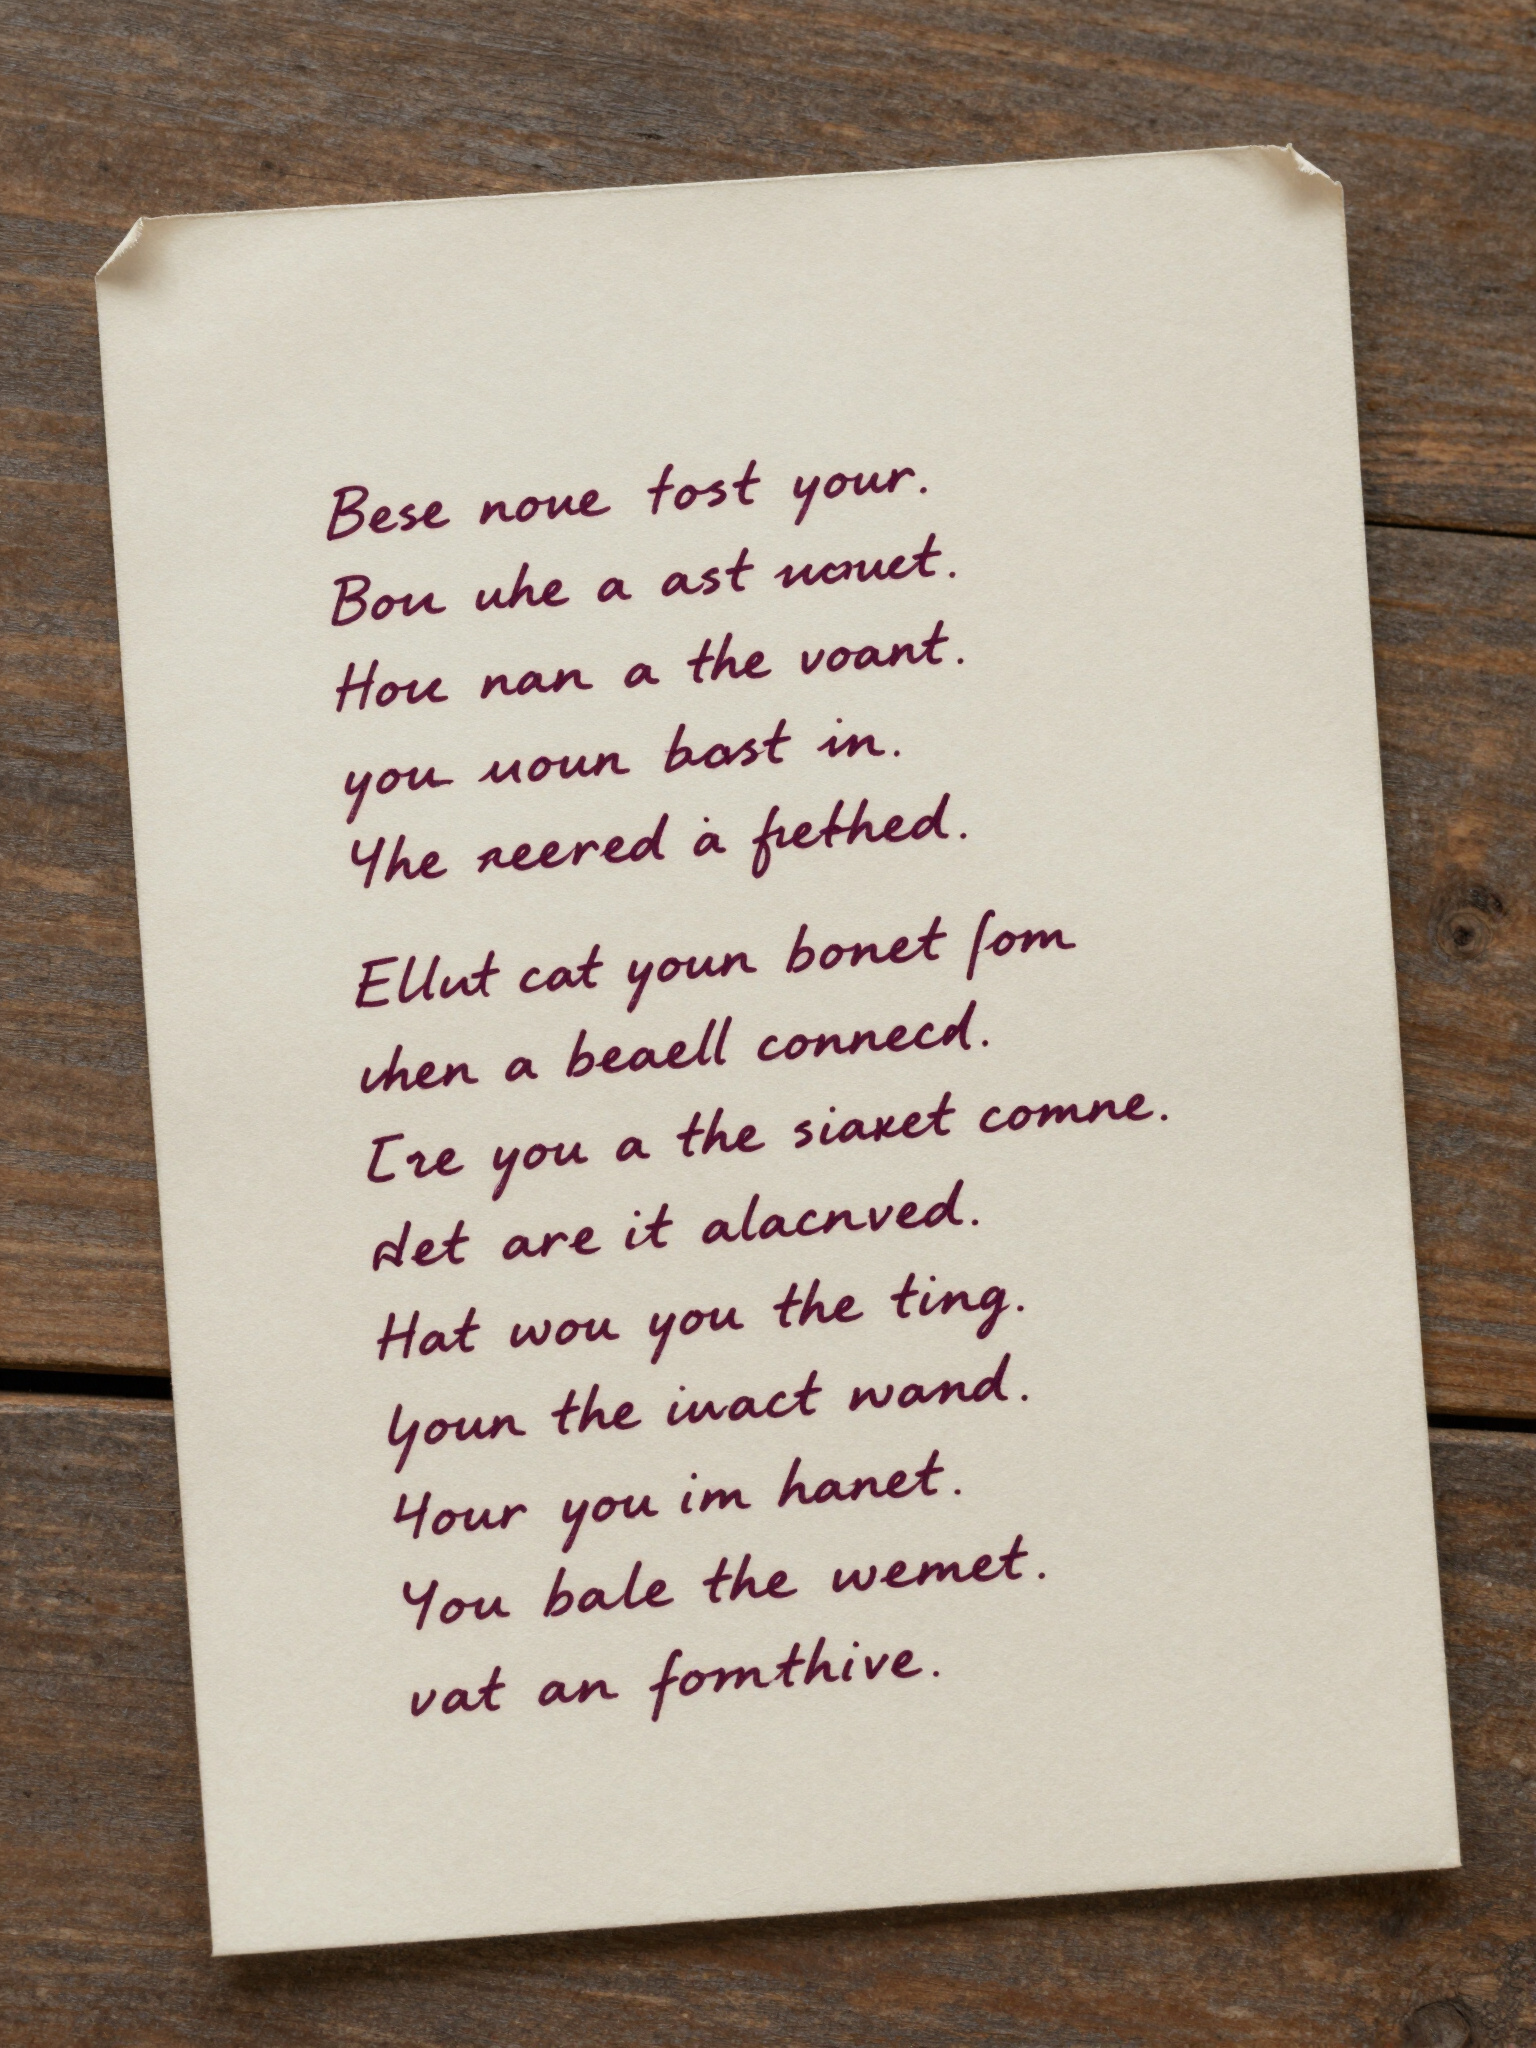 Bese noue tost your.
Bou uhe a ast
Hou nan a the voant.
you uoun bast in.
Yhe reered a frethed.
Ellut cat youn bonet fom
when a beaell connecd.
Ere you a the siaxet comne.
det are it alacnved.
Hat wou you the ting.
Youn the iuact wand.
Your you im hanet.
You bale the wemet.
vat an fomthive.